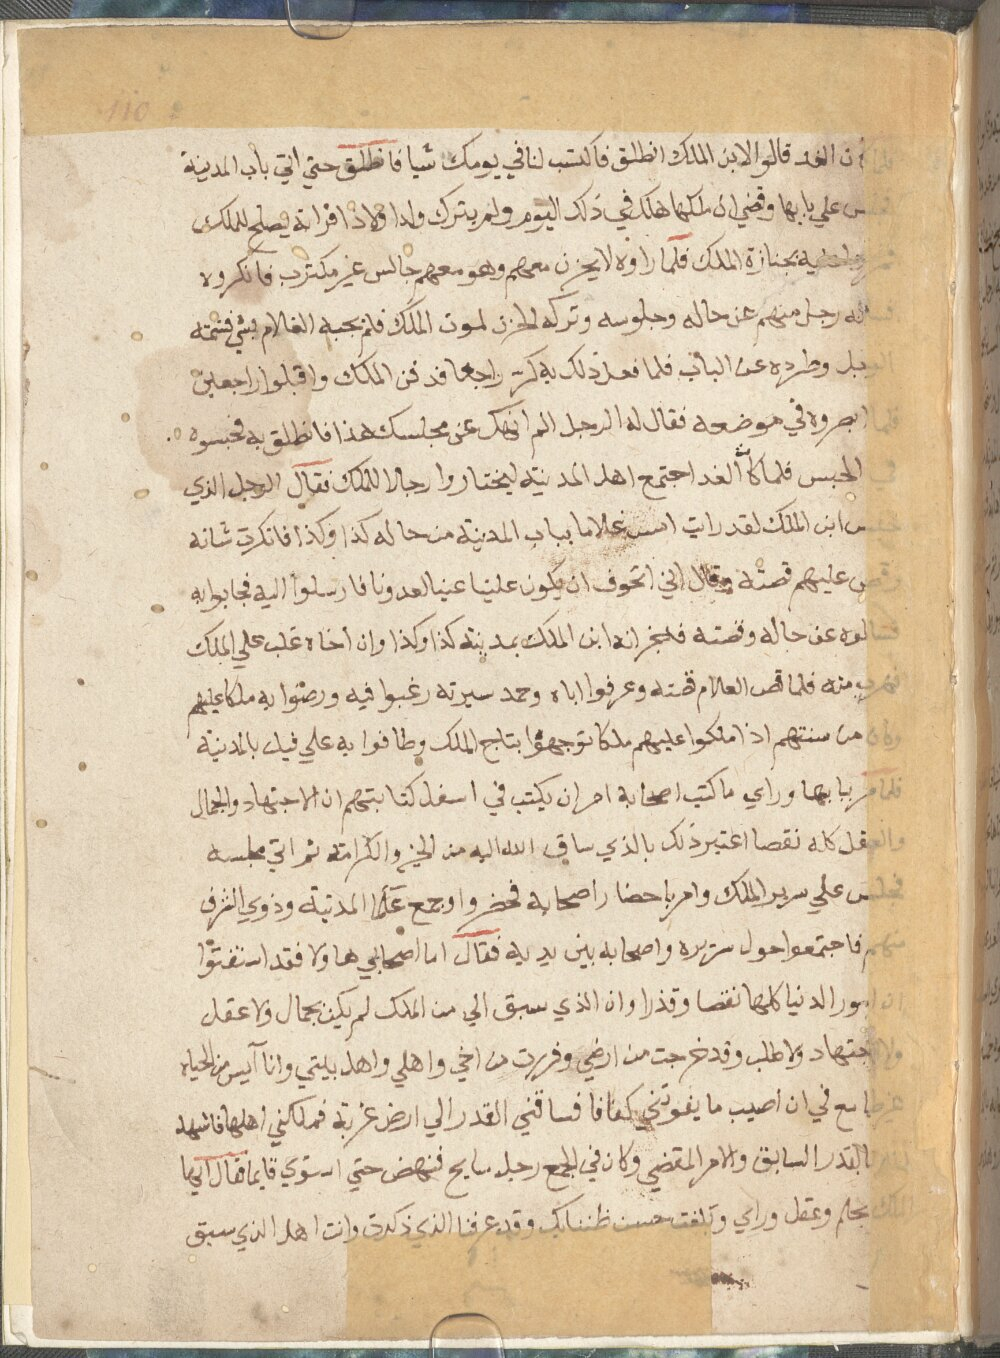 110
كان الغد قالوا لابن الملك انطلق فاكتسب لنا في يومك شيا فانطلق حتي اتي باب المدينة
فجلس علي بابها وقضي ان ملكها هلك في ذلك اليوم ولم يترك ولدا ولا ذا قرابة يصلح للملك
بجنازة الملك فلما راوه لا يحزن معهم وهو معهم جالس غير مكترب فانكروه
فساله رجل منهم عن حاله وجلوسه وتركه الحزن لموت الملك فلم يجبه الغلام بشي فشتمه
الرجل وطرده عن الباب فلما فعل ذلك به كر راجعا فدفن الملك واقبلوا راجعين
فلما ابصروه في موضعه فقال له الرجل الم انهك عن مجلسك هذا فانطلق به فحبسوه
في الحبس فلما كان الغد اجتمع اهل المدينة ليختاروا رجلا للملك فقال الرجل الذي
حبس ابن الملك لقد رايت امس غلاما بباب المدينة من حاله كذا وكذا فانكرت شانه
وقص عليهم قصته وقال اني اتخوف ان يكون علينا عينا لعدونا فارسلوا اليه فجابوا به
فسالوه عن حاله وقصته فاخبر انه ابن الملك بمدينة كذا وكذا وان اخاه غلب علي الملك
فهرب منه فلما قص الغلام قصته وعرفوا اباه وحمد سيرته رغبوا فيه ورضوا به ملكا عليهم
وكان من سنتهم اذا ملكوا عليهم ملكا توجهوا بتاج الملك وطافوا به علي فيل بالمدينة
فلما مر ببابها وراي ما كتب اصحابه امر ان يكتب في اسفل كتابتهم ان الاجتهاد والجمال
والعقل كله نقصا اعتبر ذلك بالذي ساق الله اليه من الخير والكرامة ثم اتي مجلسه
فجلس علي سرير الملك وامر باحضار اصحابه فحضروا وجمع علما المدينة وذوي الشرف
منهم فاجتمعوا حول سريره واصحابه بين يديه فقال اما اصحابي هاولا فقد استفتوا
ان امور الدنيا كلها نقصا وقدرا وان الذي سبق الي من الملك لم يكن بجمال ولا عقل
ولا اجتهاد ولا طلب وقد خرجت من ارضي وفررت من اخي واهلي واهل بيتي وانا آيس من الحياه
غير طامع في ان اصيب ما يفوتني كفافا فساقني القدر الي ارض غربة فملكني اهلها فاشهد
بالقدر السابق والامر المقضي وكان في الجمع رجل سايح فنهض حتي استوي قايما فقال ايها
الملك بحلم وعقل وراي وبلغت حسن ظننابك وقد عرفنا الذي ذكرت وانت اهل الذي سبق